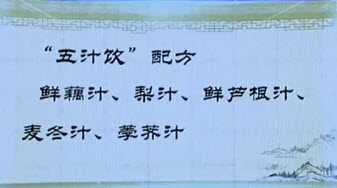 “五汁饮”配方
鲜藕汁、梨汁、鲜芦根汁、
麦冬汁、荸荠汁